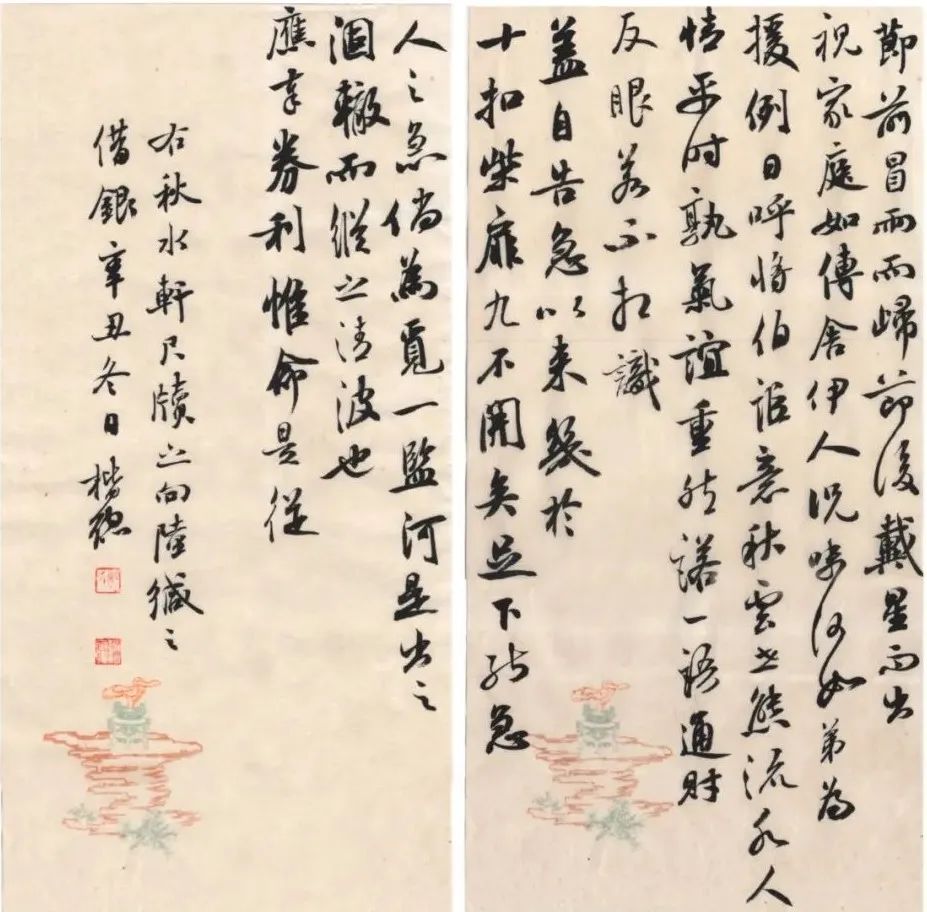 節前冒雨而歸節後戴星而出
視家庭如傳舍伊人況味何如弟為
援例日呼將伯詎意秋雲世態流水人
情平时孰氣誼重然諾一語通財
反眼若不相識
蓋自告急以來幾於
十扣柴扉九不開矣足下能急
人之急倘為覓一監河是出之
涸轍而縱之清波也
應書券利惟命是從
右秋水軒尺牘之向陸緘之
借銀辛丑冬日